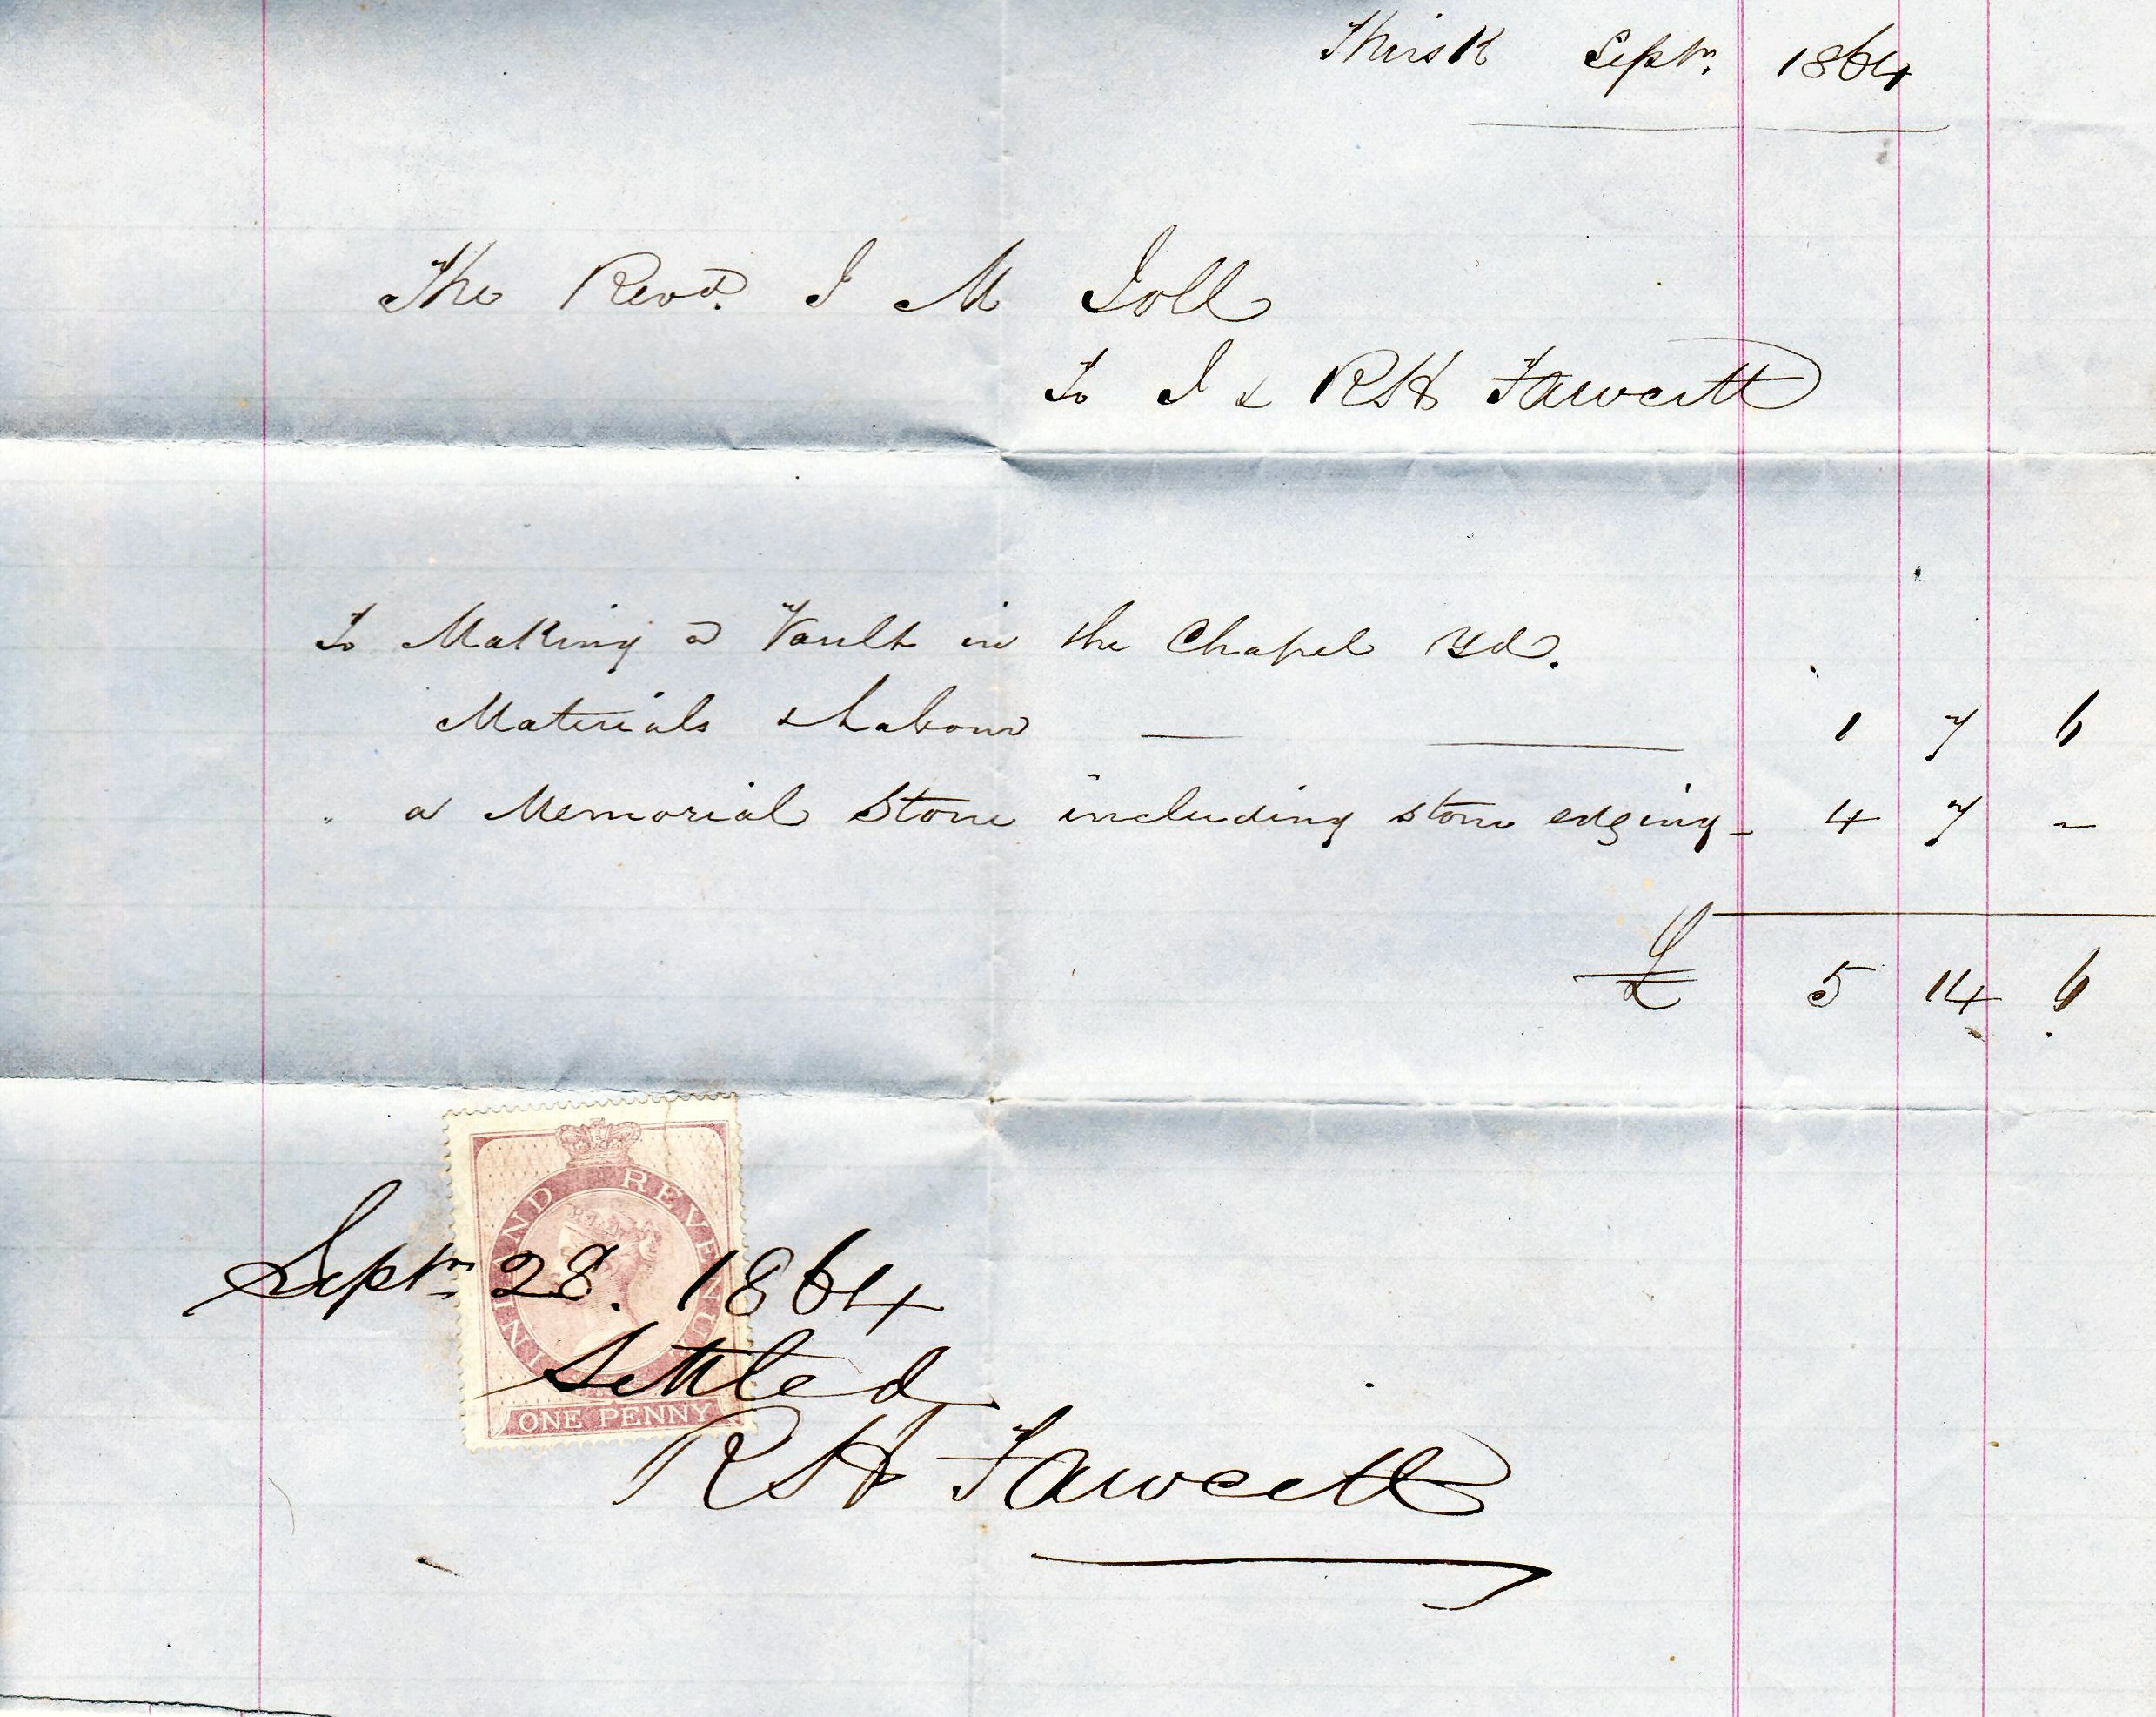 Thirsk Septr. 1864
The Revd. J M Joll
To J & RH Fawcett
To Making a Vault in the Chapel Yd.
Materials & Labour — — 1 7 6
" a Memorial Stone including stone edging - 4 7 -
£ 5 14 6
INLAND REVENUE
Septr. 28. 1864
Settled
ONE PENNY
RH Fawcett